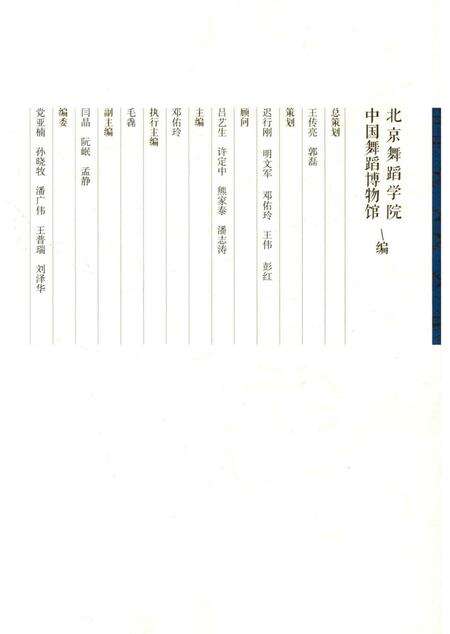 北京舞蹈学院
中国舞蹈博物馆
编
总策划
王传亮 郭磊
策划
迟行刚 明文军 邓佑玲 王伟 彭红
顾问
吕艺生 许定中 熊家泰 潘志涛
主编
邓佑玲
执行主编
毛毳
副主编
闫晶 阮岷 孟静
编委
党亚楠 孙晓牧 潘广伟 王普瑞 刘泽华